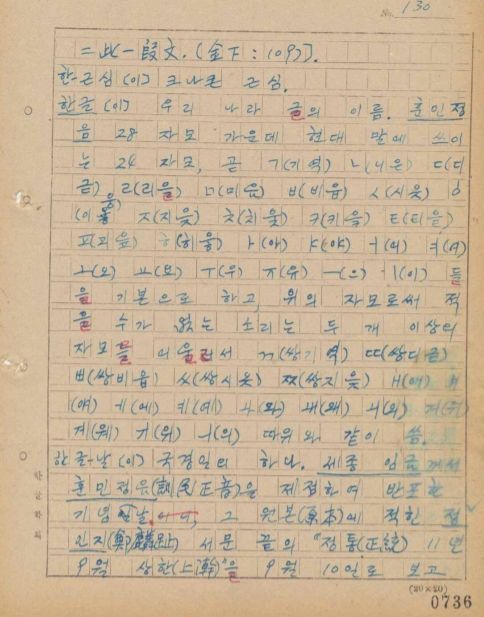 No. 130
二此一段文. (金下: 109)].
한-근심 (이) 크나큰 근심.
한글 (이) 우리 나라 글의 이름. 훈민정
음 28 자모 가운데 현대 말에 쓰이
는 24 자모, 곧 ㄱ(기역) ㄴ(니은) ㄷ(디
귿) ㄹ(리을) ㅁ(미음) ㅂ(비읍) ㅅ(시옷) ㅇ
(이응) ㅈ(지읒) ㅊ(치읓) ㅋ(키읔) ㅌ(티읕)
ㅍ(피읖) ㅎ(히읗) ㅏ(아) ㅑ(야) ㅓ(어) ㅕ(여)
ㅗ(오) ㅛ(요) ㅜ(우) ㅠ(유) ㅡ(으) ㅣ(이) 들
을 기본으로 하고, 위의 자모로써 적
을 수가 없는 소리는 두 개 이상의
자모를 어울러서 ㄲ(쌍기역) ㄸ(쌍디귿)
ㅃ(쌍비읍) ㅆ(쌍시옷) ㅉ(쌍지읒) ㅐ(애) ㅒ
(얘) ㅔ(에) ㅖ(예) ㅘ(와) ㅙ(왜) ㅚ(외) ㅝ(워)
ㅞ(웨) ㅟ(위) ㅢ(의) 따위와 같이 씀.
한글-날 (이) 국경일의 하나. 세종 임금께서
훈민정음(訓民正音)을 제정하여 반포한
기념 날, 그 원본(原本)에 적힌 정
인지(鄭麟趾) 서문 끝의 "정통(正統) 11년
9월 상한(上澣)"을 9월 10일로 보고
한글학회
(20×20)
00736